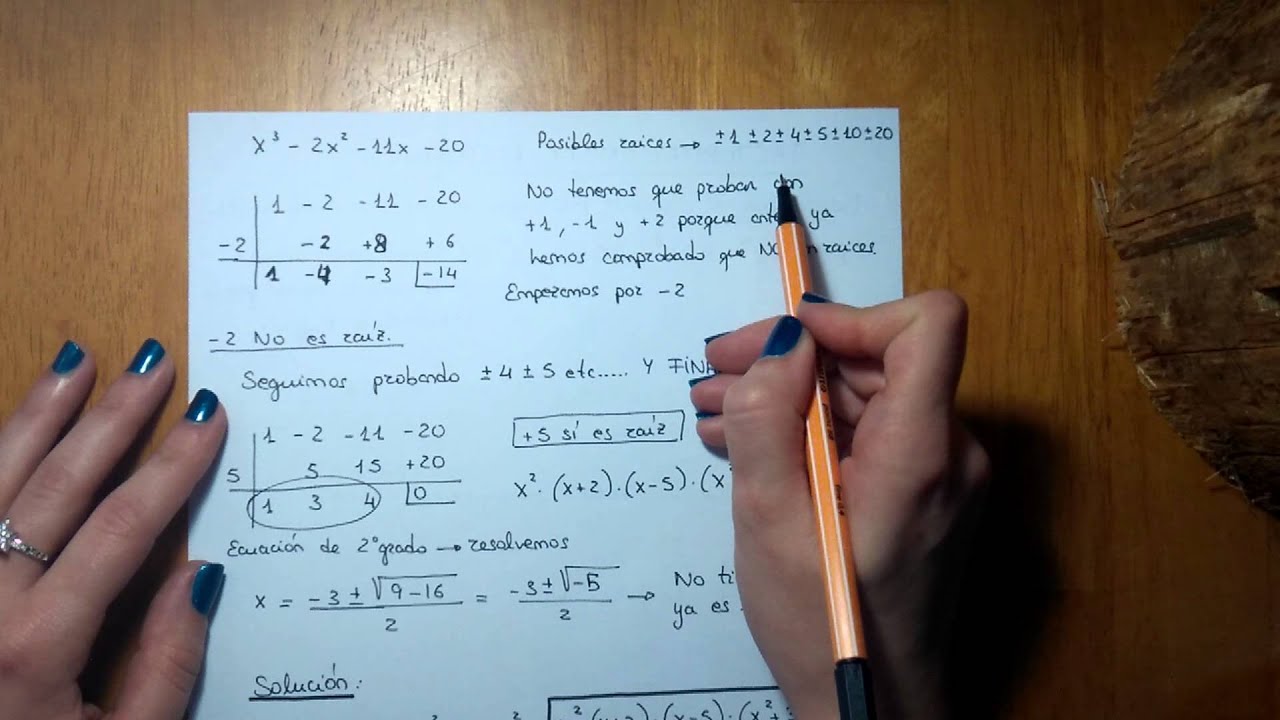 x³ - 2x² - 11x - 20
Posibles raices → ±1 ±2 ±4 ±5 ±10 ±20
1 -2 -11 -20
-2 -2 +8 +6
1 -4 -3 -14
No tenemos que probar con
+1, -1 y +2 porque antes ya
hemos comprobado que NO raices.
Empezemos por -2
-2 No es raíz.
Seguimos probando ±4 ±5 etc..... Y
1 -2 -11 -20
5 5 15 +20
1 3 4 0
+5 sí es raíz
x² · (x+2) · (x-5) · (x²
Ecuación de 2º grado → resolvemos
x = -3 ± √9-16 / 2 = -3 ± √-5 / 2 → No
ya es
Solución: